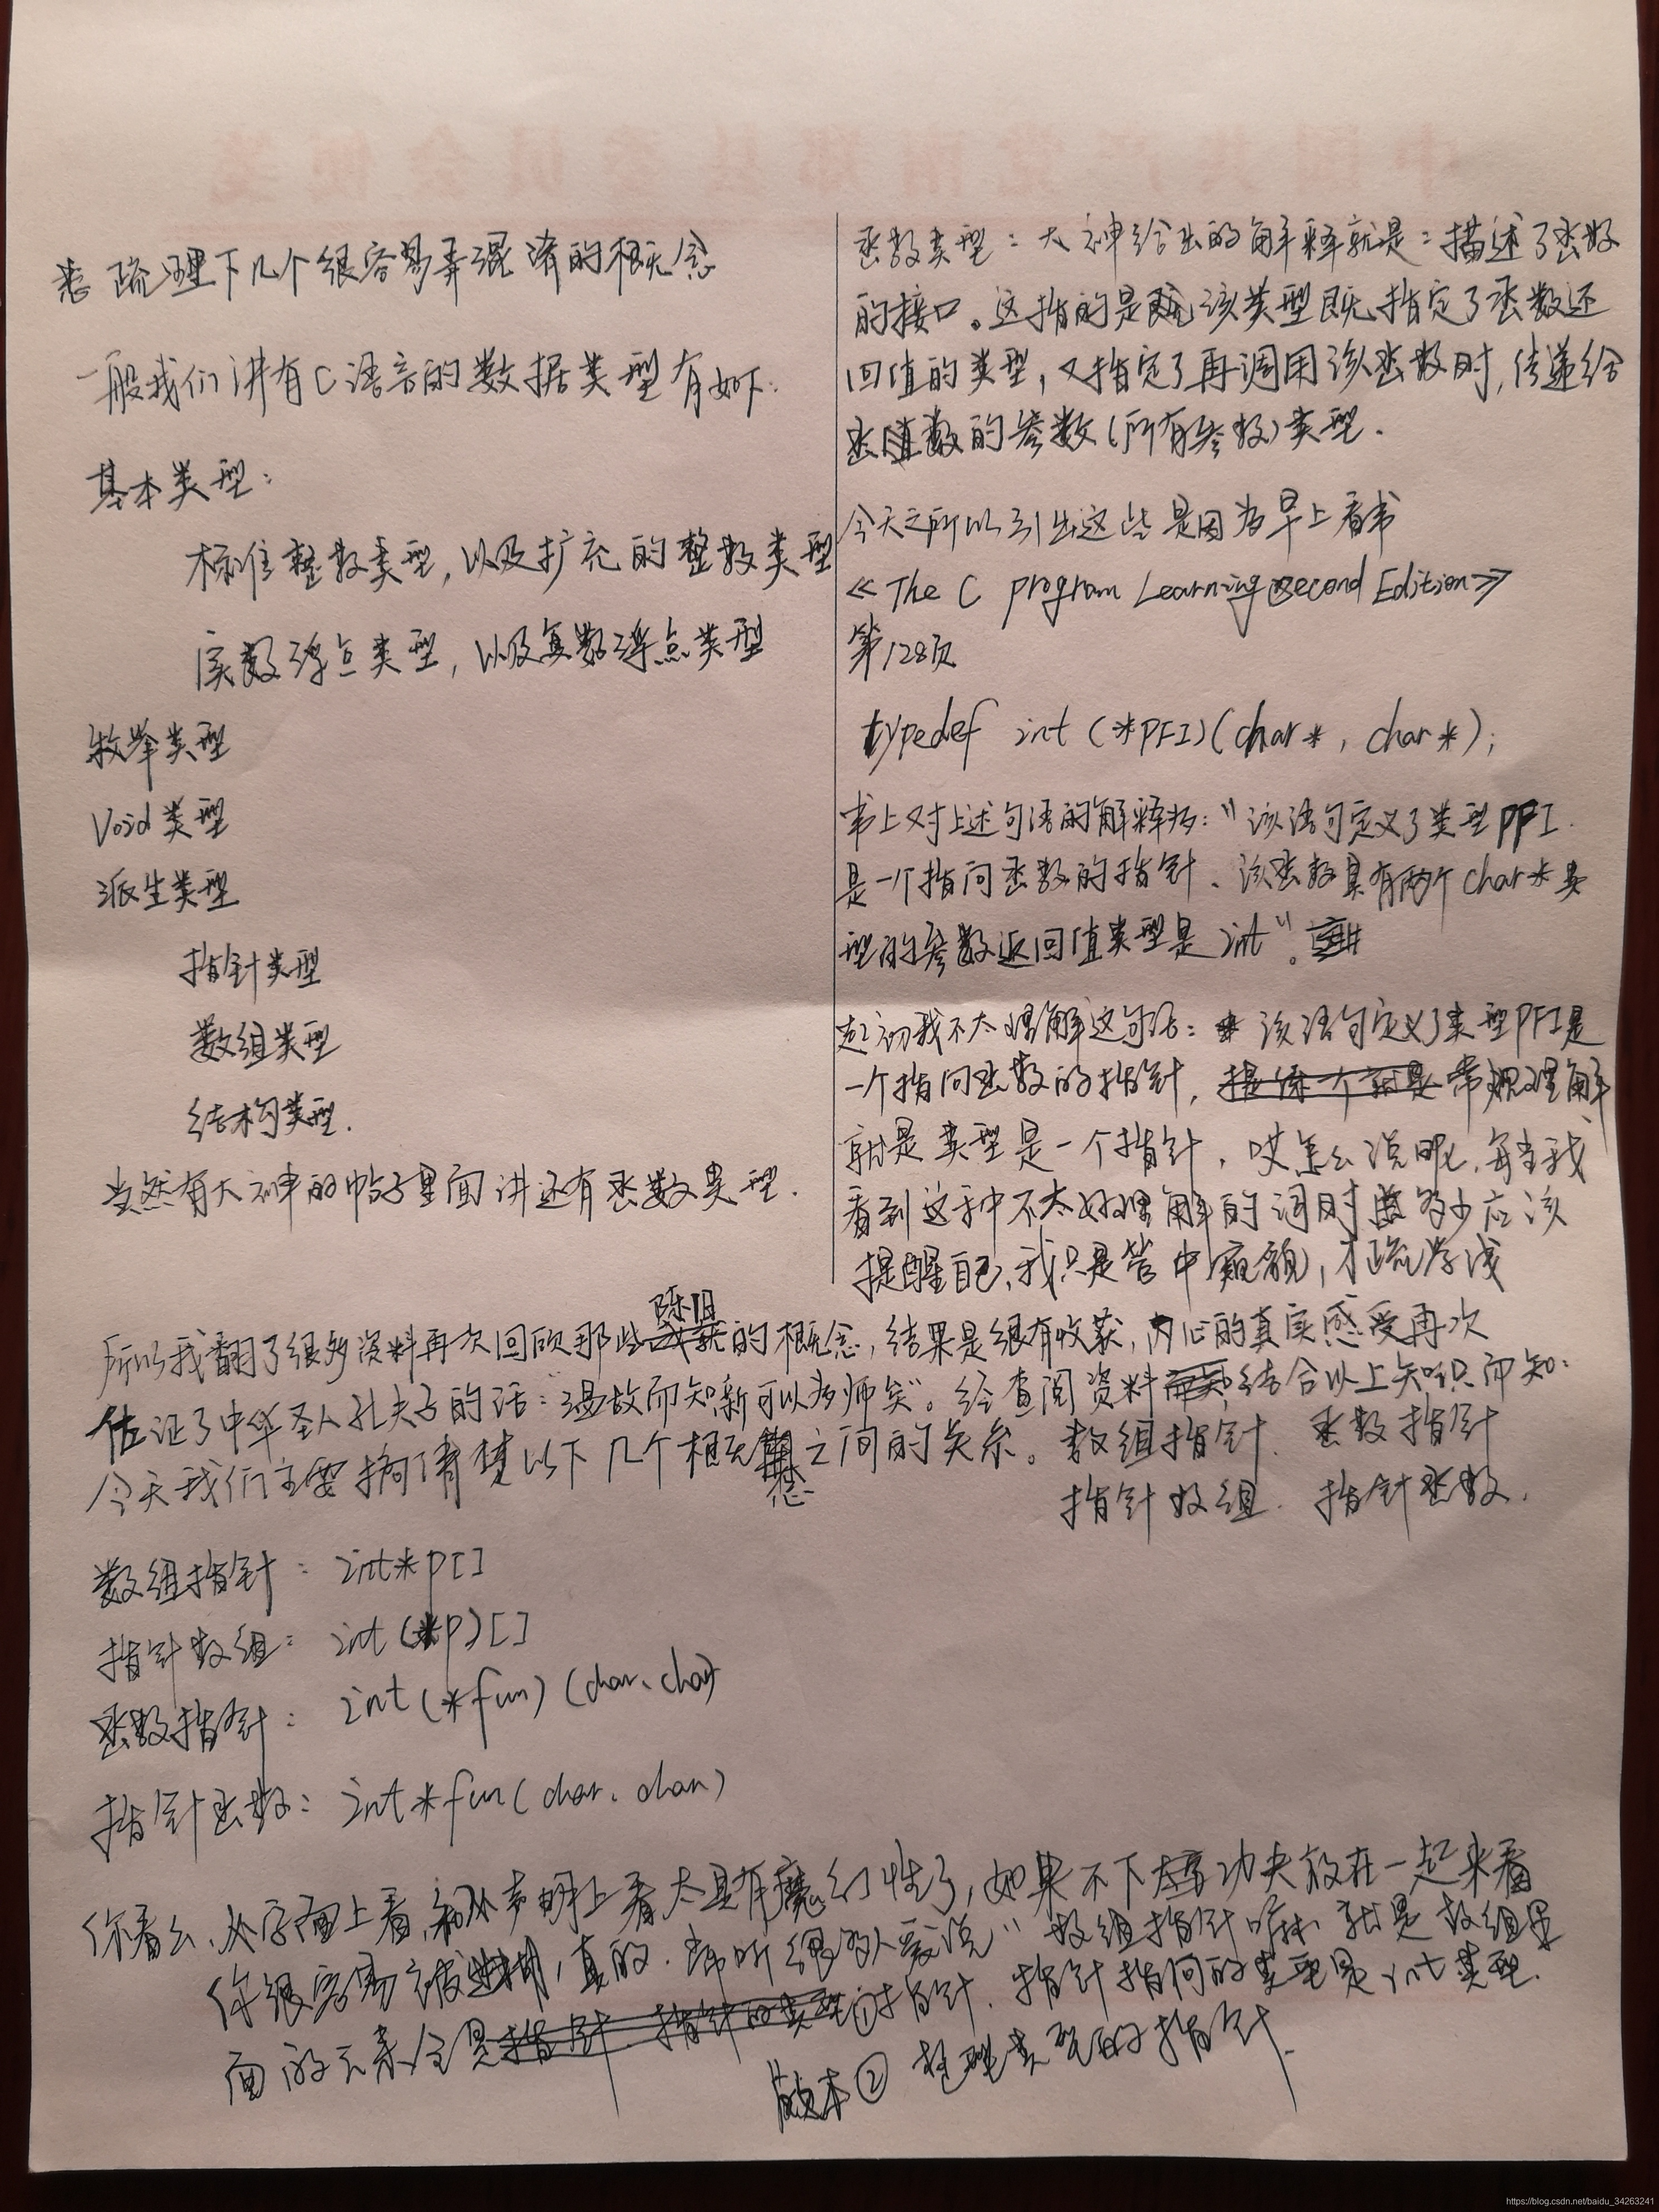 疏理下几个很容易弄混淆的概念
一般我们讲有C语言的数据类型有如下:
基本类型:
标准整数类型, 以及扩充的整数类型
实数浮点类型, 以及复数浮点类型
枚举类型
Void类型
派生类型
指针类型
数组类型
结构类型.
当然有大神的帖子里面讲还有函数类型.
函数类型: 大神给出的解释就是: 描述了函数
的接口。这指的是该类型既指定了函数还
回值的类型, 又指定了再调用该函数时, 传递给
函数的参数(所有参数)类型.
今天之所以引出这些是因为早上看书
《The C program Learning Second Edition》
第128页
typedef int (*PFI)(char*, char*);
书上对上述句语的解释为: "该语句定义了类型PFI
是一个指向函数的指针、该函数具有两个char*类
型的参数返回值类型是int"。
起初我不太理解这句话: 该语句定义了类型PFI是
一个指向函数的指针, 常规理解
就是类型是一个指针, 哎怎么说呢, 每当我
看到这种不太好理解的词时 多少应该
提醒自己, 我只是管中窥豹, 才疏学浅
所以我翻了很多资料再次回顾那些陈旧的概念, 结果是很有收获, 内心的真实感受再次
佐证了中华圣人孔夫子的话: "温故而知新可以为师矣"。经查阅资料结合以上知识而知:
今天我们主要搞清楚以下几个概念之间的关系。数组指针、函数指针
指针数组、指针函数.
数组指针: int*p[]
指针数组: int(*p)[]
函数指针: int(*fun)(char、char)
指针函数: int*fun(char、char)
你看么、从字面上看, 和从声明上看太具有魔幻性了, 如果不下大功夫放在一起来看
你很容易被迷糊, 真的. 常听很多人爱说" 数组指针嘛 就是数组里
面的元素全是①指针、指针指向的类型是int类型.
版本② 整型类型的指针.